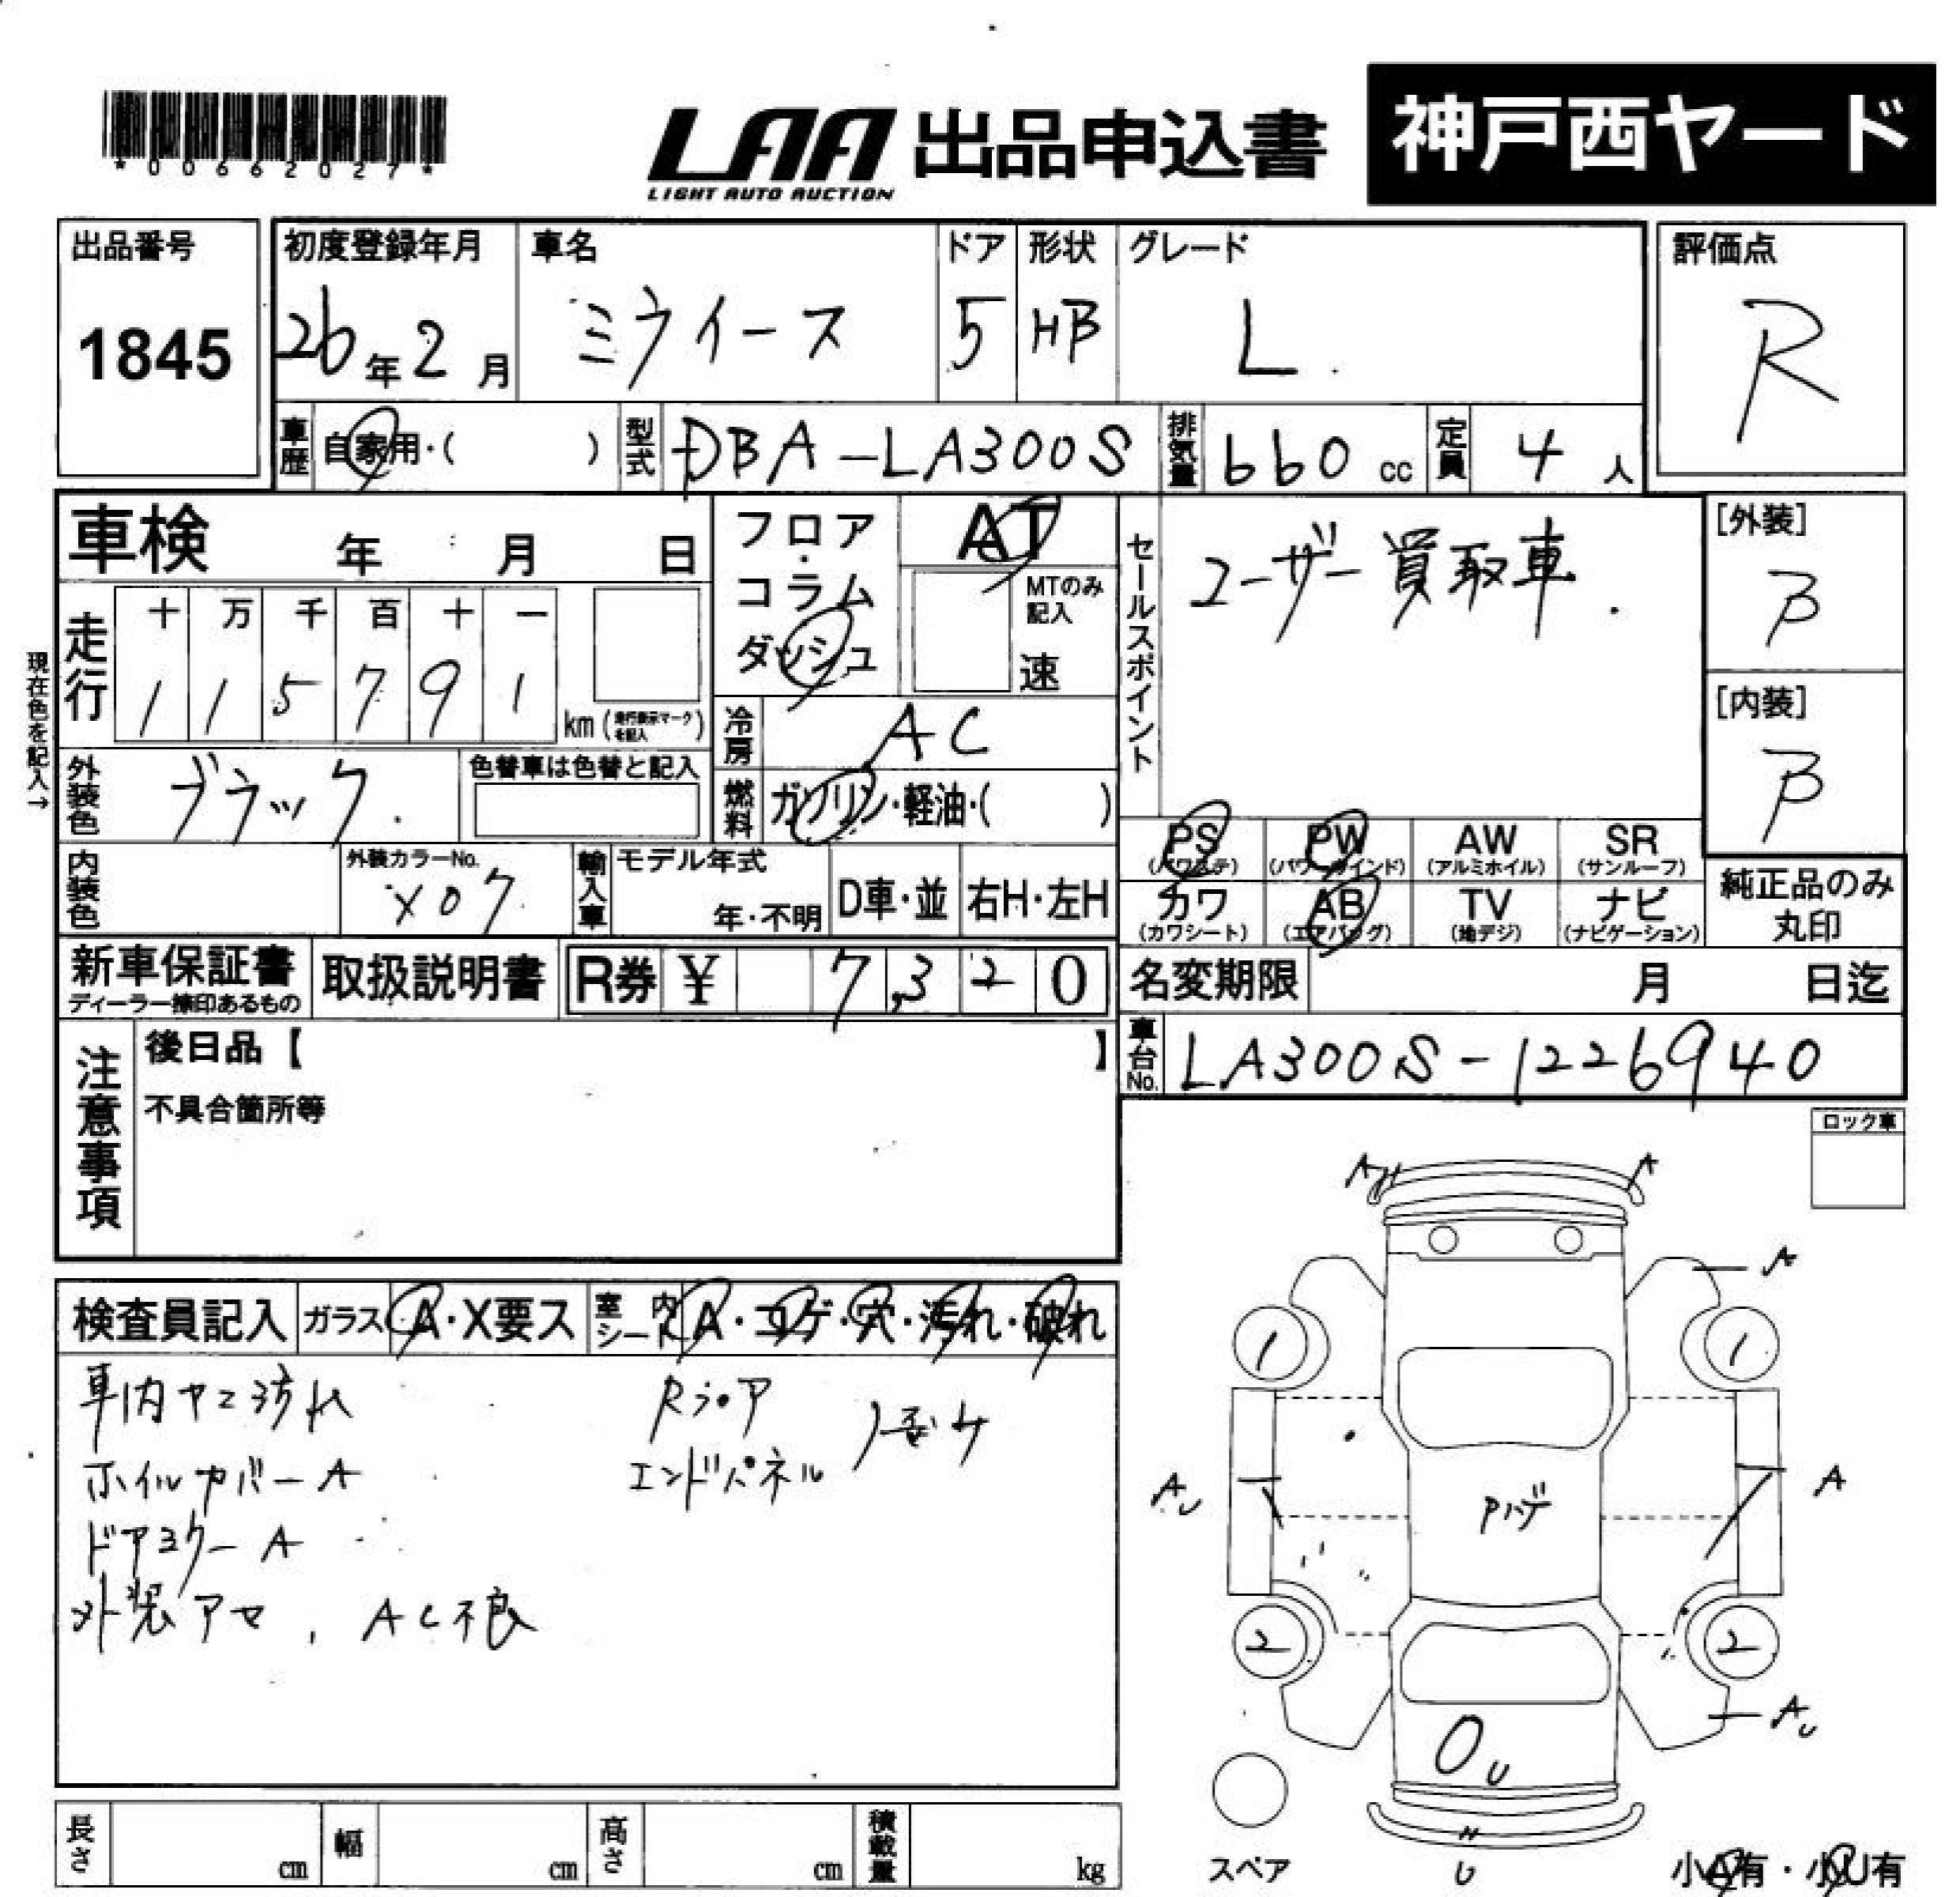 *00662027*
LAA 出品申込書 神戸西ヤード
LIGHT AUTO AUCTION
出品番号 1845
初度登録年月 26年2月
車名 ミライース
ドア 5
形状 HB
グレード L
評価点 R
車歴 自家用・( )
型式 DBA-LA300S
排気量 660 cc
定員 4 人
車検 年 月 日
フロア・コラム ダッシュ
AT
MTのみ記入 速
セールスポイント ユーザー買取車.
[外装] B
[内装] B
現在色を記入→
走行 十 万 千 百 十 一
1 1 5 7 9 1 km (走行表示マークを記入)
冷房 AC
外装色 ブラック.
色替車は色替と記入
燃料 ガソリン・軽油・( )
内装色
外装カラーNo. X07
輸入車 モデル年式 年・不明 D車・並 右H・左H
PS (パワステ) PW (パワーウインド) AW (アルミホイル) SR (サンルーフ)
カワ (カワシート) AB (エアバッグ) TV (地デジ) ナビ (ナビゲーション)
純正品のみ丸印
新車保証書 ディーラー捺印あるもの
取扱説明書
R券 ¥ 7,320
名変期限 月 日迄
車台No. LA300S-1226940
注意事項
後日品【 】
不具合箇所等
ロック車
検査員記入 ガラス A・X要ス 室内シート A・コゲ・穴・汚れ・破れ
車内ヤニ汚れ
ホイルカバー A
ドアミラー A
外装アセ, AC不良
Rフロア
エンドパネル
A A
A
1 1
AU A
Pハゲ
2 2
AU
U
U
スペア
小A有・小U有
長さ cm 幅 cm 高さ cm 積載量 kg